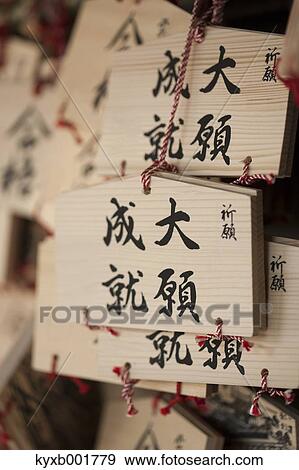 祈願
大願
成就
祈願
大願
成就
祈願
願
就
合格
fotosearch
kyxb001779 www.fotosearch.com